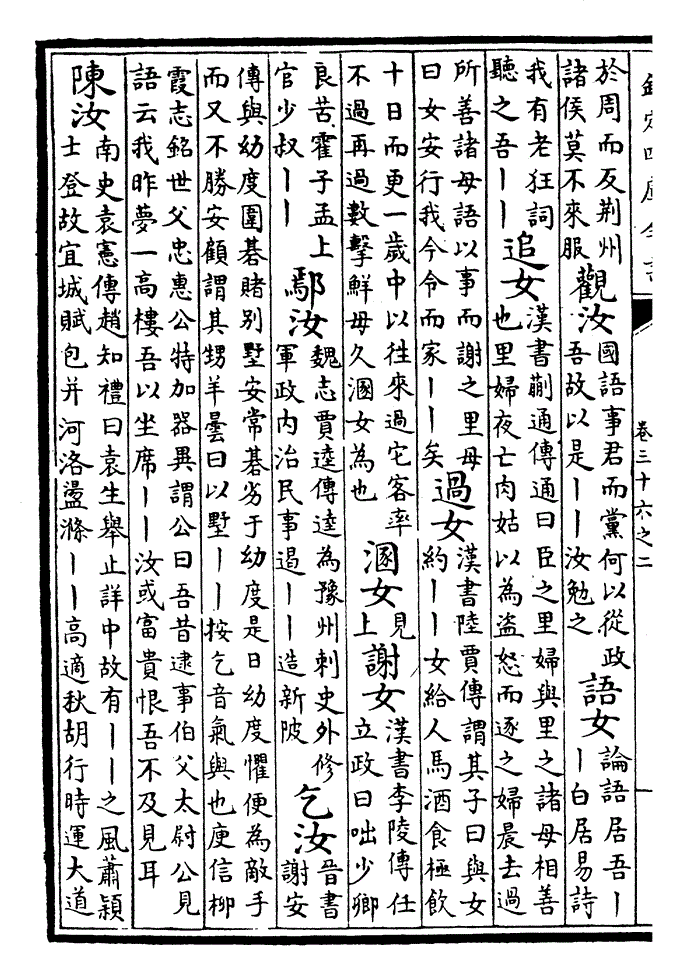 欽定四庫全書
卷三十六之二
於周而反荆州
諸侯莫不來服
觀汝
國語事君而黨何以從政
吾故以是丨丨汝勉之
語女
論語居吾丨
丨白居易詩
我有老狂詞
聽之吾丨丨
追女
漢書蒯通傳通曰臣之里婦與里之諸母相善
也里婦夜亡肉姑以為盜怒而逐之婦晨去過
所善諸母語以事而謝之里母
曰女安行我今令而家丨丨矣
過女
漢書陸賈傳謂其子曰與女
約丨丨女給人馬酒食極飲
十日而更一歲中以往來過它客率
不過再過數擊鮮毋久溷女為也
溷女
見
上
謝女
漢書李陵傳任
立政曰咄少卿
良苦霍子孟上
官少叔丨丨
鄢汝
魏志賈逵傳逵為豫州刺史外修
軍政内治民事遏丨丨造新陂
乞汝
晉書
謝安
傳與幼度圍碁賭别墅安常碁劣于幼度是日幼度懼便為敵手
而又不勝安顧謂其甥羊曇曰以墅丨丨按乞音氣與也庾信柳
霞志銘世父忠惠公特加器異謂公曰吾昔逮事伯父太尉公見
語云我昨夢一高樓吾以坐席丨丨汝或富貴恨吾不及見耳
陳汝
南史袁憲傳趙知禮曰袁生舉止詳中故有丨丨之風蕭穎
士登故宜城賦包并河洛盪滌丨丨高適秋胡行時運大道